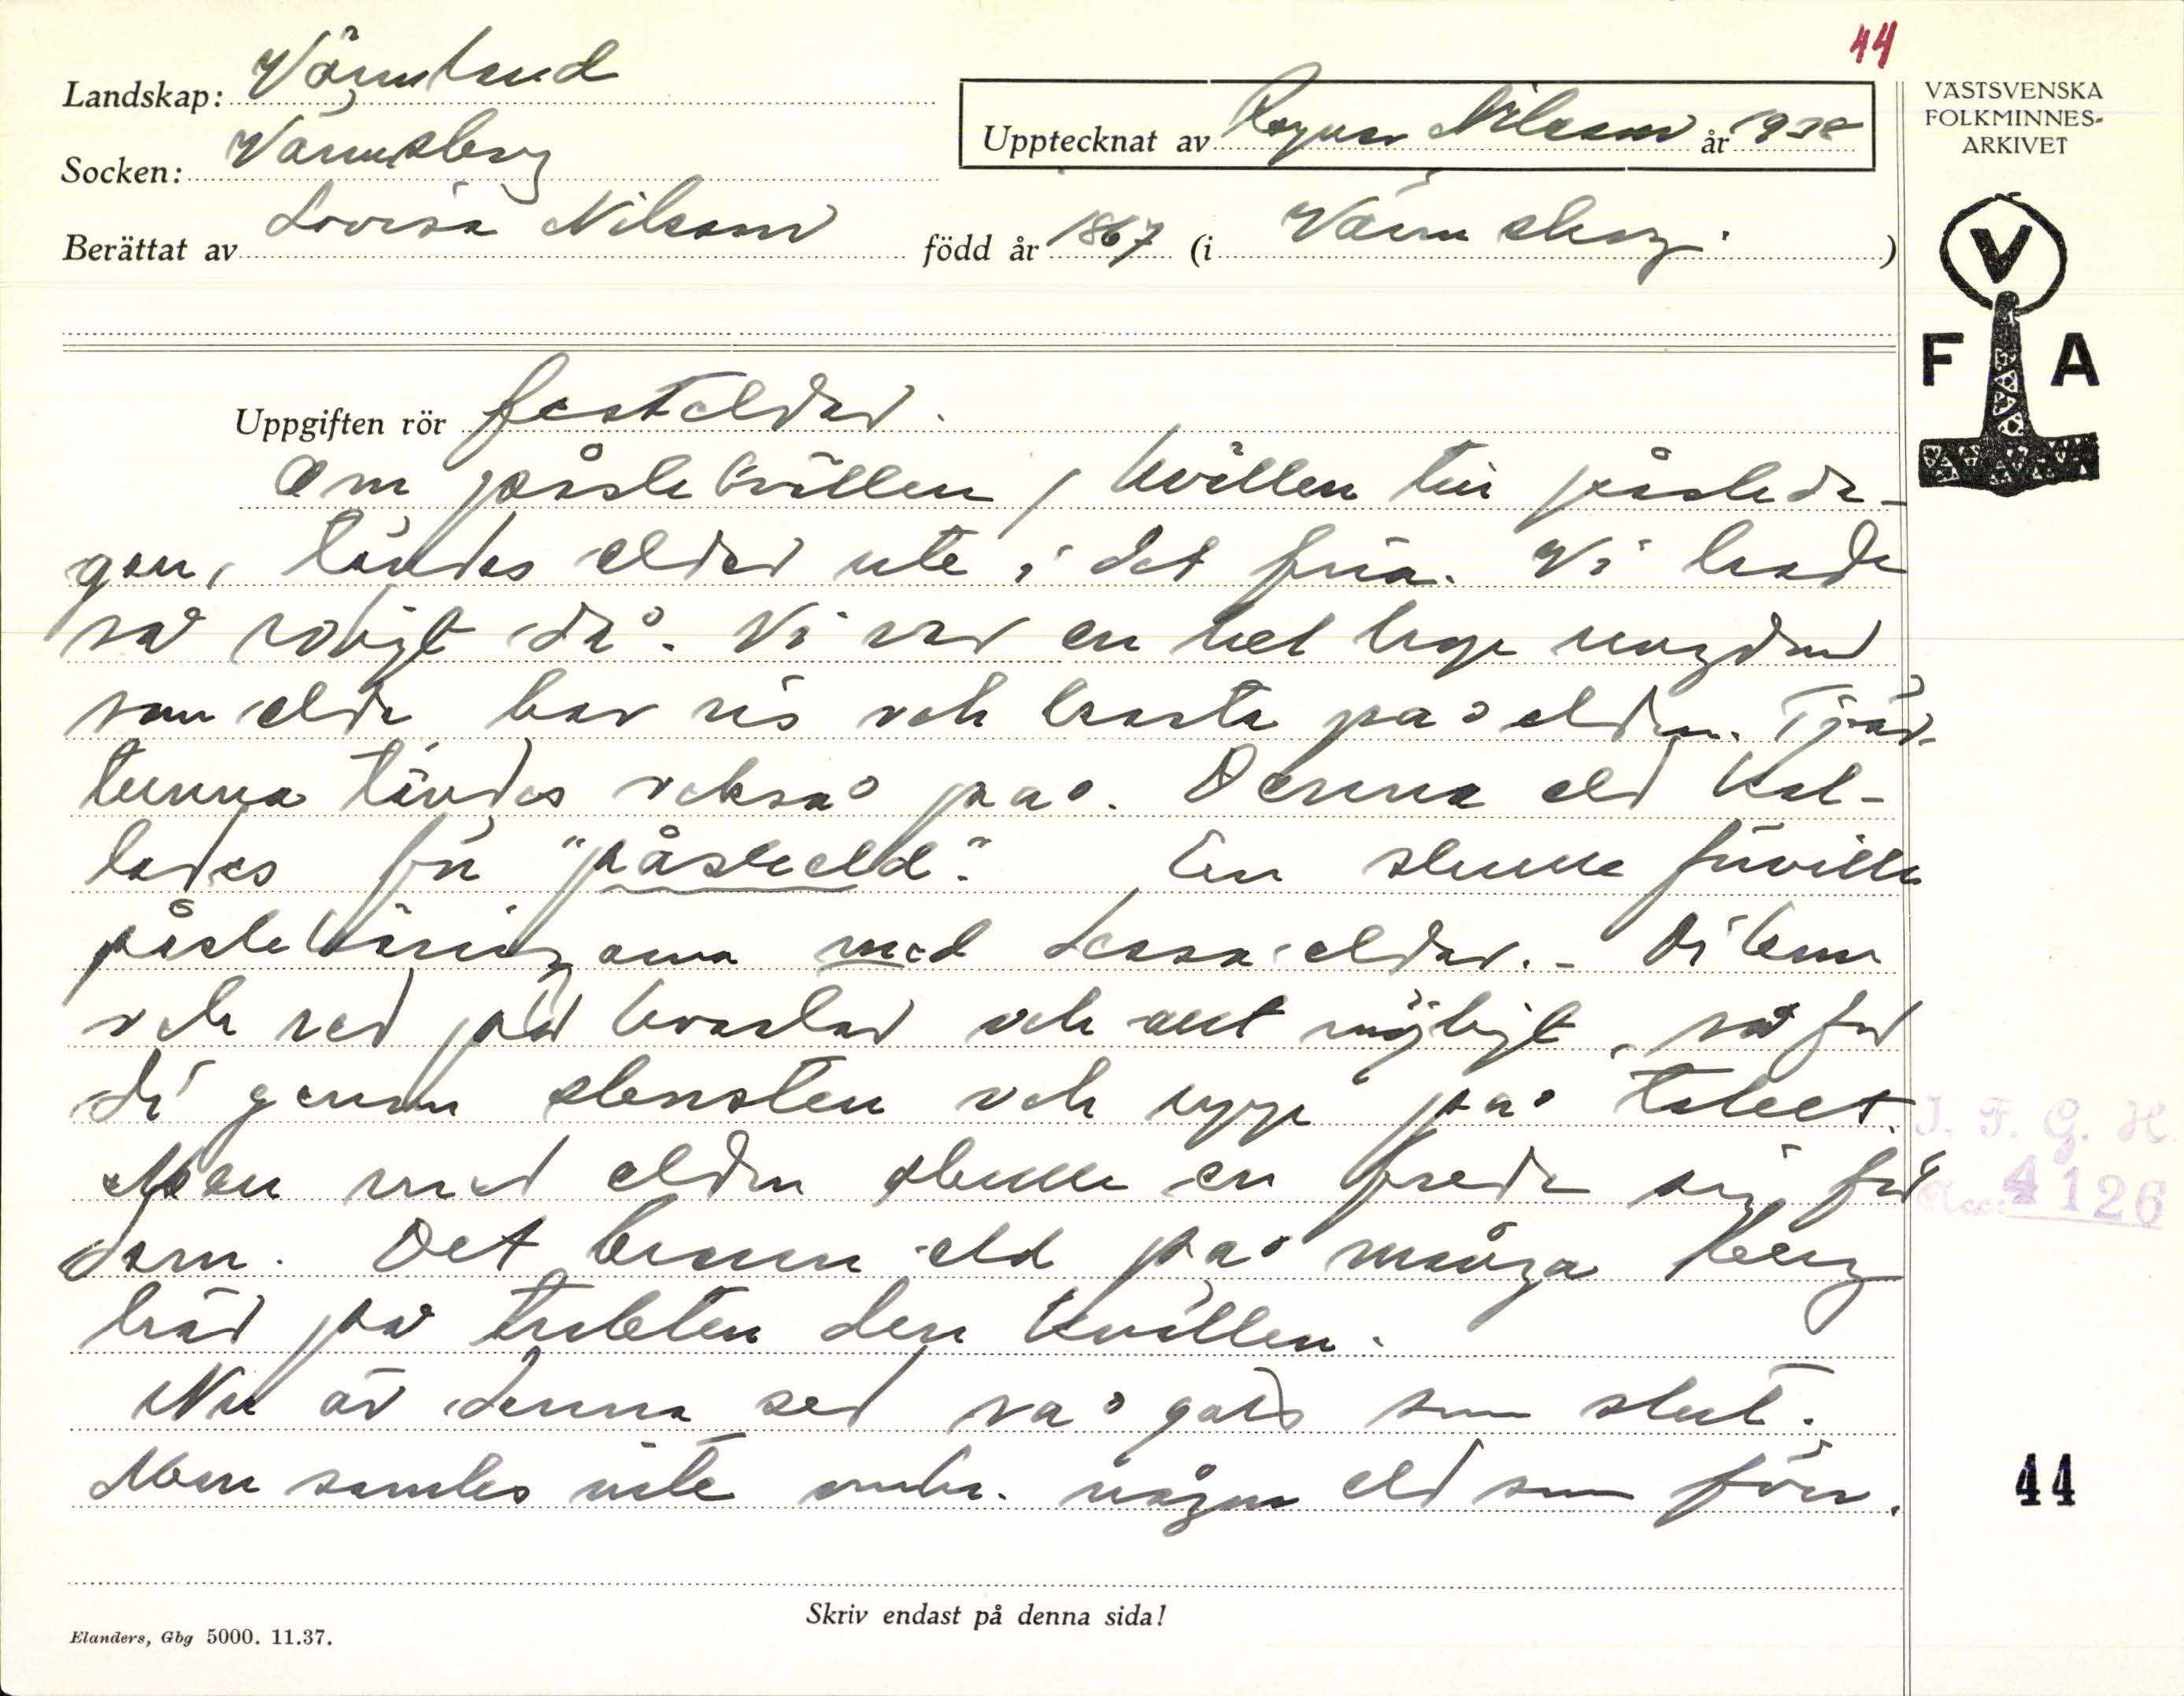 44
Landskap: Värmland
Socken: Värmskog
Berättat av Lovisa Nilsson född år 1867 (i Värmskog.)
Upptecknat av Ragnar Nilsson år 1938
VÄSTSVENSKA
FOLKMINNES-
ARKIVET
V
F A
Uppgiften rör festeldar.
Om påskkvällen, kvällen till påskda-
gen, tändes eldar ute i det fria. Vi hade
så roligt då. Vi var en hel hop ungdom
som elda bar ris och kasta på elden. Tjär-
tunna tändes också på. Denna eld kal-
lades för "påskeld". En skulle förvilla
påskkäringarna med dessa eldar. - Di kom
och red på kvastar och allt möjligt, så for
di genom skorsten och upp på taket.
Men med elden skulle en freda sig för
dom. Det brann eld på många berg
här på trakten den kvällen.
Nu är denna sed så gott som slut.
Man samlas inte omkr. någon eld som förr.
J. F. G. H.
Acc: 4126
44
Skriv endast på denna sida!
Elanders, Gbg 5000. 11.37.